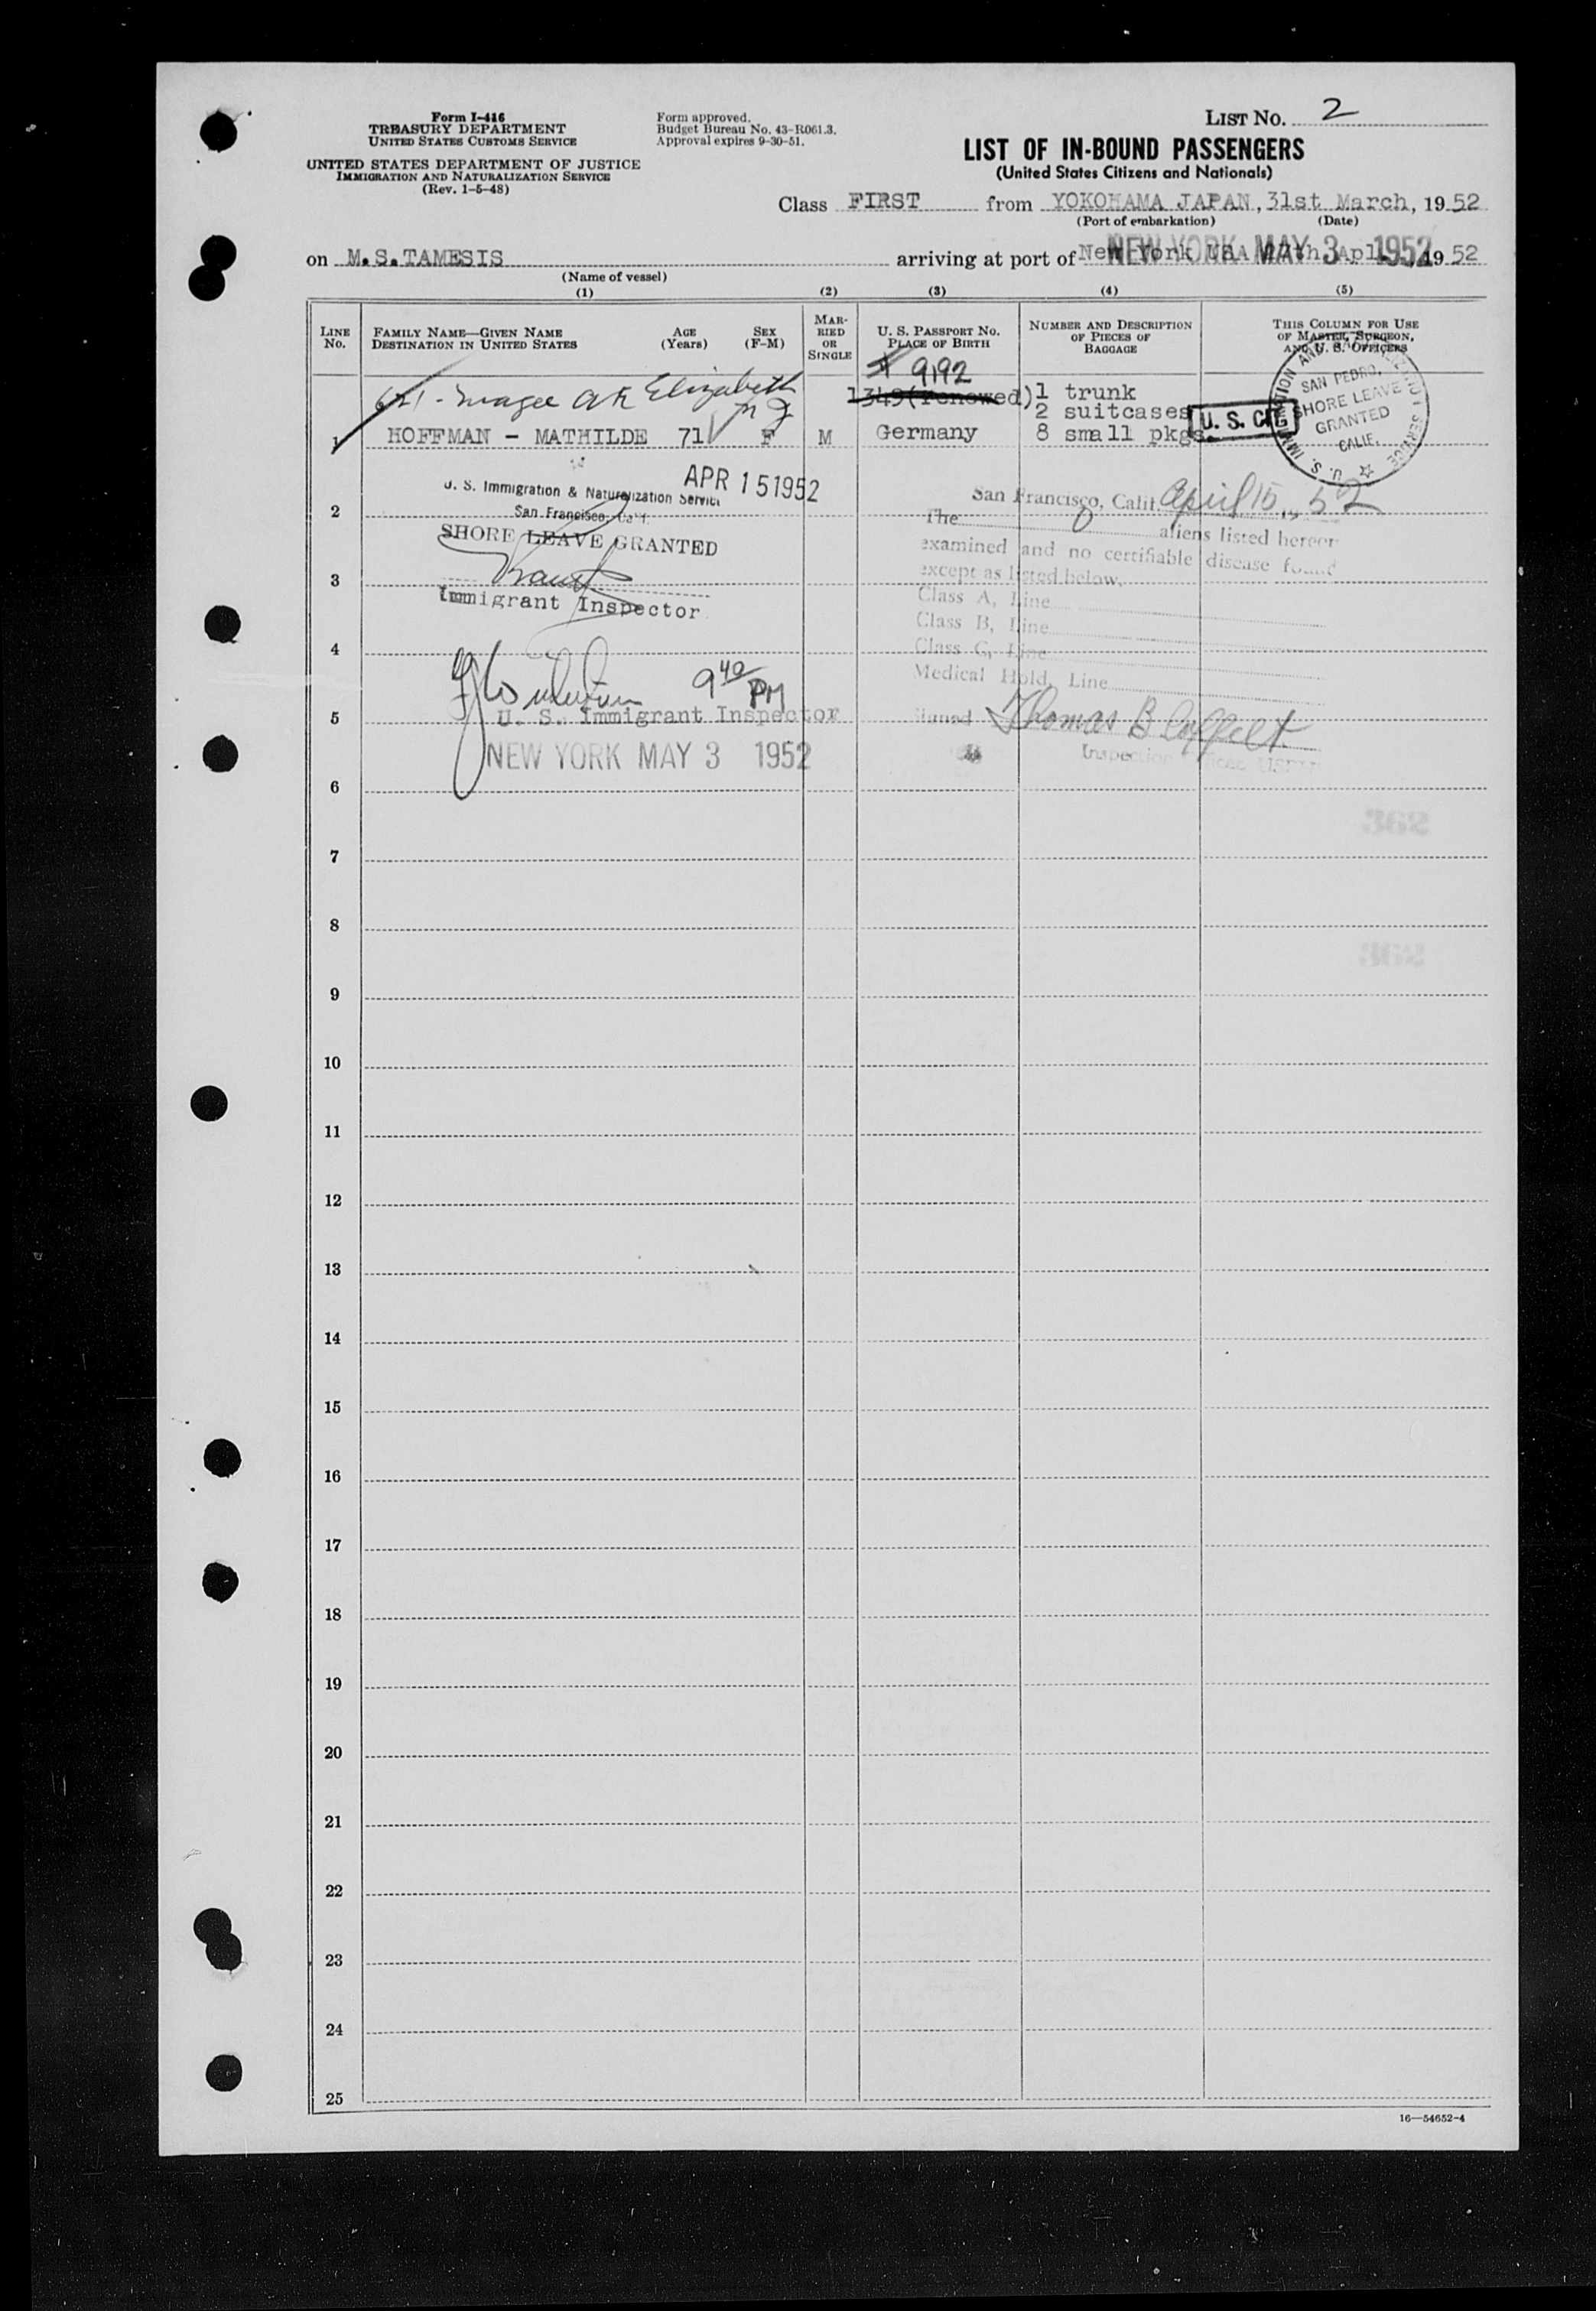 Form I-416
TREASURY DEPARTMENT
UNITED STATES CUSTOMS SERVICE
UNITED STATES DEPARTMENT OF JUSTICE
IMMIGRATION AND NATURALIZATION SERVICE
(Rev. 1-5-48)
Form approved.
Budget Bureau No. 43-R061.3.
Approval expires 9-30-51.
LIST NO. 2
LIST OF IN-BOUND PASSENGERS
(United States Citizens and Nationals)
Class FIRST from YOKOHAMA JAPAN, 31st March, 1952
(Port of embarkation) (Date)
on M.S.TAMESIS arriving at port of New York USA 27th Apl., 1952
NEW YORK MAY 3 1952
(Name of vessel)
(1) (2) (3) (4) (5)
LINE NO.
FAMILY NAME—GIVEN NAME
DESTINATION IN UNITED STATES
AGE
(Years)
SEX
(F-M)
MARRIED OR SINGLE
U. S. PASSPORT NO.
PLACE OF BIRTH
NUMBER AND DESCRIPTION OF PIECES OF BAGGAGE
THIS COLUMN FOR USE OF MASTER, SURGEON, AND U. S. OFFICERS
621 - Magee Ave Elizabeth
N J
# 9192
1349(renewed)
1 trunk
2 suitcases
8 small pkgs.
U. S. C.
SAN PEDRO,
SHORE LEAVE
GRANTED
CALIF.
1 HOFFMAN - MATHILDE 71 F M Germany
APR 15 1952
U. S. Immigration & Naturalization Service
San Francisco, Calif.
SHORE LEAVE GRANTED
Immigrant Inspector
San Francisco, Calif. April 15, 52
The 0 aliens listed hereon
examined and no certifiable disease found
except as listed below.
Class A, Line
Class B, Line
Class C, Line
Medical Hold, Line
Signed Thomas B
9 40 PM
U. S. Immigrant Inspector
NEW YORK MAY 3 1952
2
3
4
5
6
7
8
9
10
11
12
13
14
15
16
17
18
19
20
21
22
23
24
25
16—54652-4